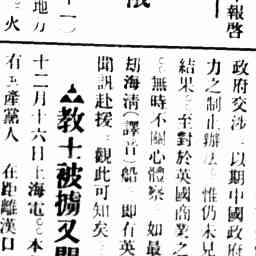 報啓
政府交涉。以期中國政府
力之制止辦法。惟仍未見
結果。至對於英國商業之
。無時不關心體察。如最
刧海清(譯音)船。卽有英
聞訊赴援。觀此可知矣
▲教士被擄又聞
十二月十六日上海電。本
有共產黨人 在距離漢口
地方
火